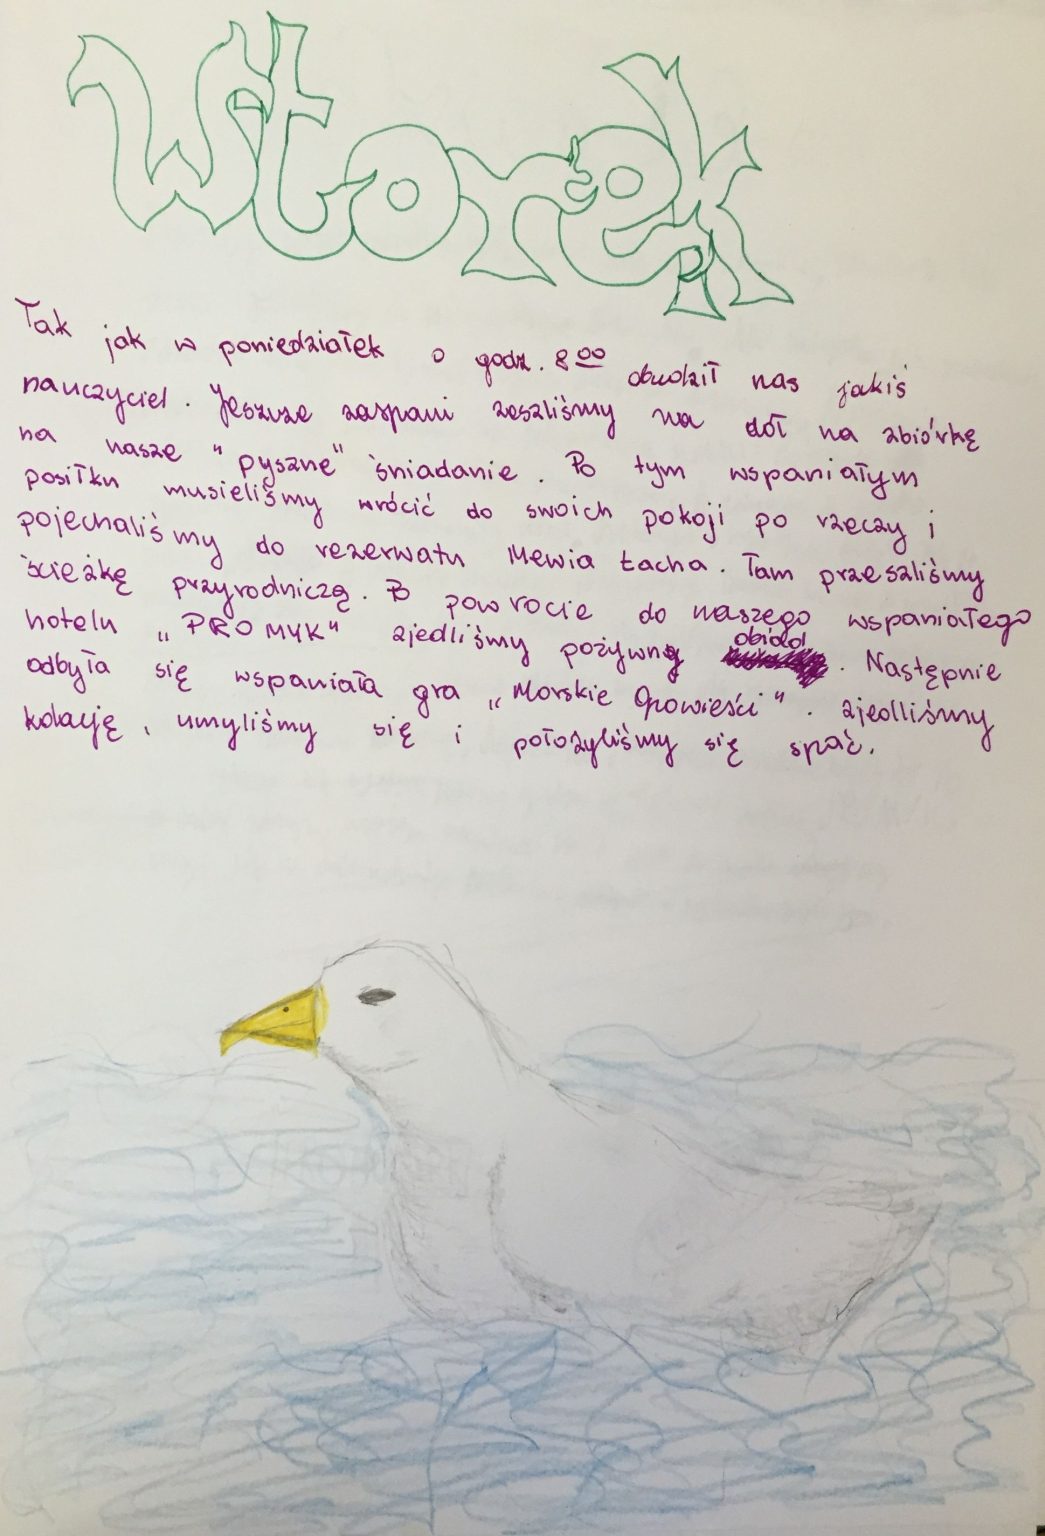 Wtorek
Tak jak w poniedziałek o godz. 8⁰⁰ obudził nas jakiś
nauczyciel. Jeszcze zaspani zeszliśmy na dół na zbiórkę
na nasze "pyszne" śniadanie. Po tym wspaniałym
posiłku musieliśmy wrócić do swoich pokoji po rzeczy i
pojechaliśmy do rezerwatu Mewia Łacha. Tam przeszliśmy
ścieżkę przyrodniczą. Po powrocie do naszego wspaniałego
hotelu „PROMYK" zjedliśmy pożywny obiad. Następnie
odbyła się wspaniała gra „Morskie Opowieści". Zjedliśmy
kolację, umyliśmy się i położyliśmy się spać.